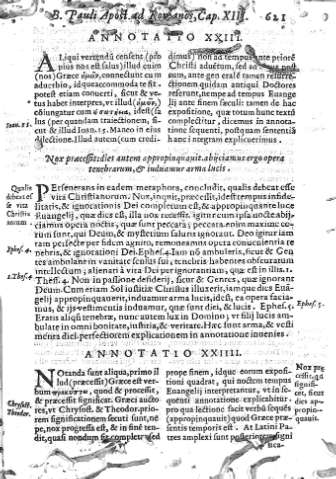 B. Pauli Apost. ad Romanos, Cap. XIII. 621
ANNOTATIO XXIII.
Aliqui vertendũ censent (pro
pius nos est salus) illud enim
(nos) Græcè connectunt cum
aduerbio, idque accommodatè fi-
potest etiam conuerti, sicut & ve-
tus habet interpres, vt illud
adiungatur cum
lus (per quandam traiectionem, si-
cut & illud Ioan. 15. Maneo in eius
dilectione. Illud autem (credi-
dimus) non ad tempus ante primũ
Christi aduentũ, sed
sum, ante generalẽ tamen resurre-
ctionem quidam antiqui Doctores
referunt, nempe ad tempus Euange
lij ante finem sæculi: tamen de hac
expositione, quæ totum hunc textũ
complectitur, dicemus in annota-
tione sequenti, postquam sententiã
hanc integram explicuerimus.
Ioan. 15.
Nox præcessit, dies autem appropinquauit. abijciamus ergo opera
tenebrarum, & induamur arma lucis.
Qualis
debeat es
se vita
Christia
norum.
Perseuerans in eadem metaphora, concludit, qualis debeat esse
vita Christianorum. Nox, inquit, præcessit, id est tempus infideli-
litatis, & ignorationis Dei completum est, & appropinquante luce
Euangelij, quæ dies est, illa nox recessit. igitur cum ipsa nocte abij-
ciamus opera noctis, quæ sunt peccata;
runt sunt, qui Deum, & mysterium salutis ignorant. Deo igitur iam
tam perfectè per fidem agnito, remoueamus opera conuenientia te
nebris, & ignorationi Dei. Ephes. 4. Iam nõ ambuletis, sicut & Gen
tes ambulant in vanitate sensus sui, tenebris habentes obscuratum
intellectum, alienati à vita Dei per ignorantiam, quæ est in illis. 1.
Thess. 4. Non in passione desiderij, sicut & Gentes, quæ ignorant
Deum. Cum etiam Sol iustitiæ Christus illuxerit, iamque dies Euan
gelij appropinquauerit, induamur arma lucis, idest, ea opera facia-
mus, & ijs vestimentis induamur, quæ sunt diei, & lucis. Ephes. 5.
Eratis aliquando tenebræ, nunc autem lux in Domino; vt filij lucis am
bulate in omni bonitate, iustitia, & veritate. Hæc sunt arma, & vesti
menta diei. perfectiorem explicationem in annotatione inuenies.
Ephes. 4.
1. Thess. 4
Ephes. 5.
ANNOTATIO XXIIII.
Notanda sunt aliqua, primo il
lud (præcessit) Græcè est ver-
bum quod & processit,
& præcessit significat. Græci aucto
res, vt Chrysost. & Theodor. prio-
rem significationem secuti sunt, nẽ
pe, nox progressa est, & in fine ten
dit, quasi nondum sit completa sed
prope finem, idque eorum exposi-
tioni quadrat, qui noctem tempus
Euangelij interpretantur, vt in se-
quenti annotatione explicabitur.
pro qua lectione facit verbũ sequẽs
(appropinquauit) quod Græcè est
At Latini Pa-
tres amplexi sunt posteriorem signi
fica-
Chrysost.
Theodor.
Nox præ
cessit, qd
signifi-
cet, sicut
dies
appropin
quauit.